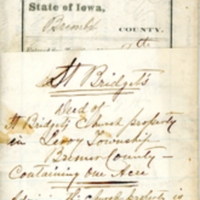 State of Iowa,
Bremer COUNTY.
St Bridget's
Deed of
St Bridget's Church property
in Leroy Township
Bremer County —
Containing one Acre
church property is